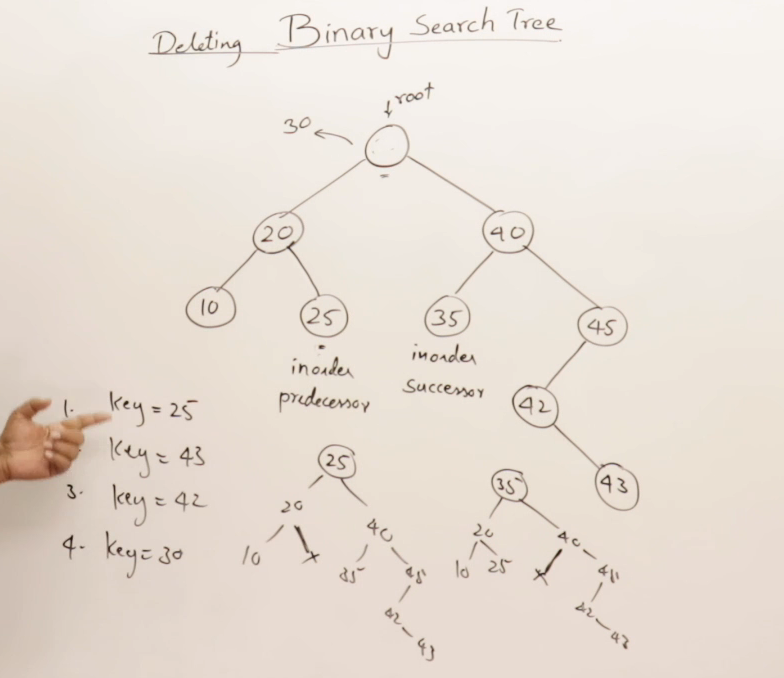 Deleting Binary Search Tree
root
30
20
40
10
25
35
45
inorder
predecessor
inorder
successor
42
43
1. key = 25
key = 43
3. key = 42
4. key = 30
25
20
40
10
35
45
42
43
35
20
40
10
25
45
42
43